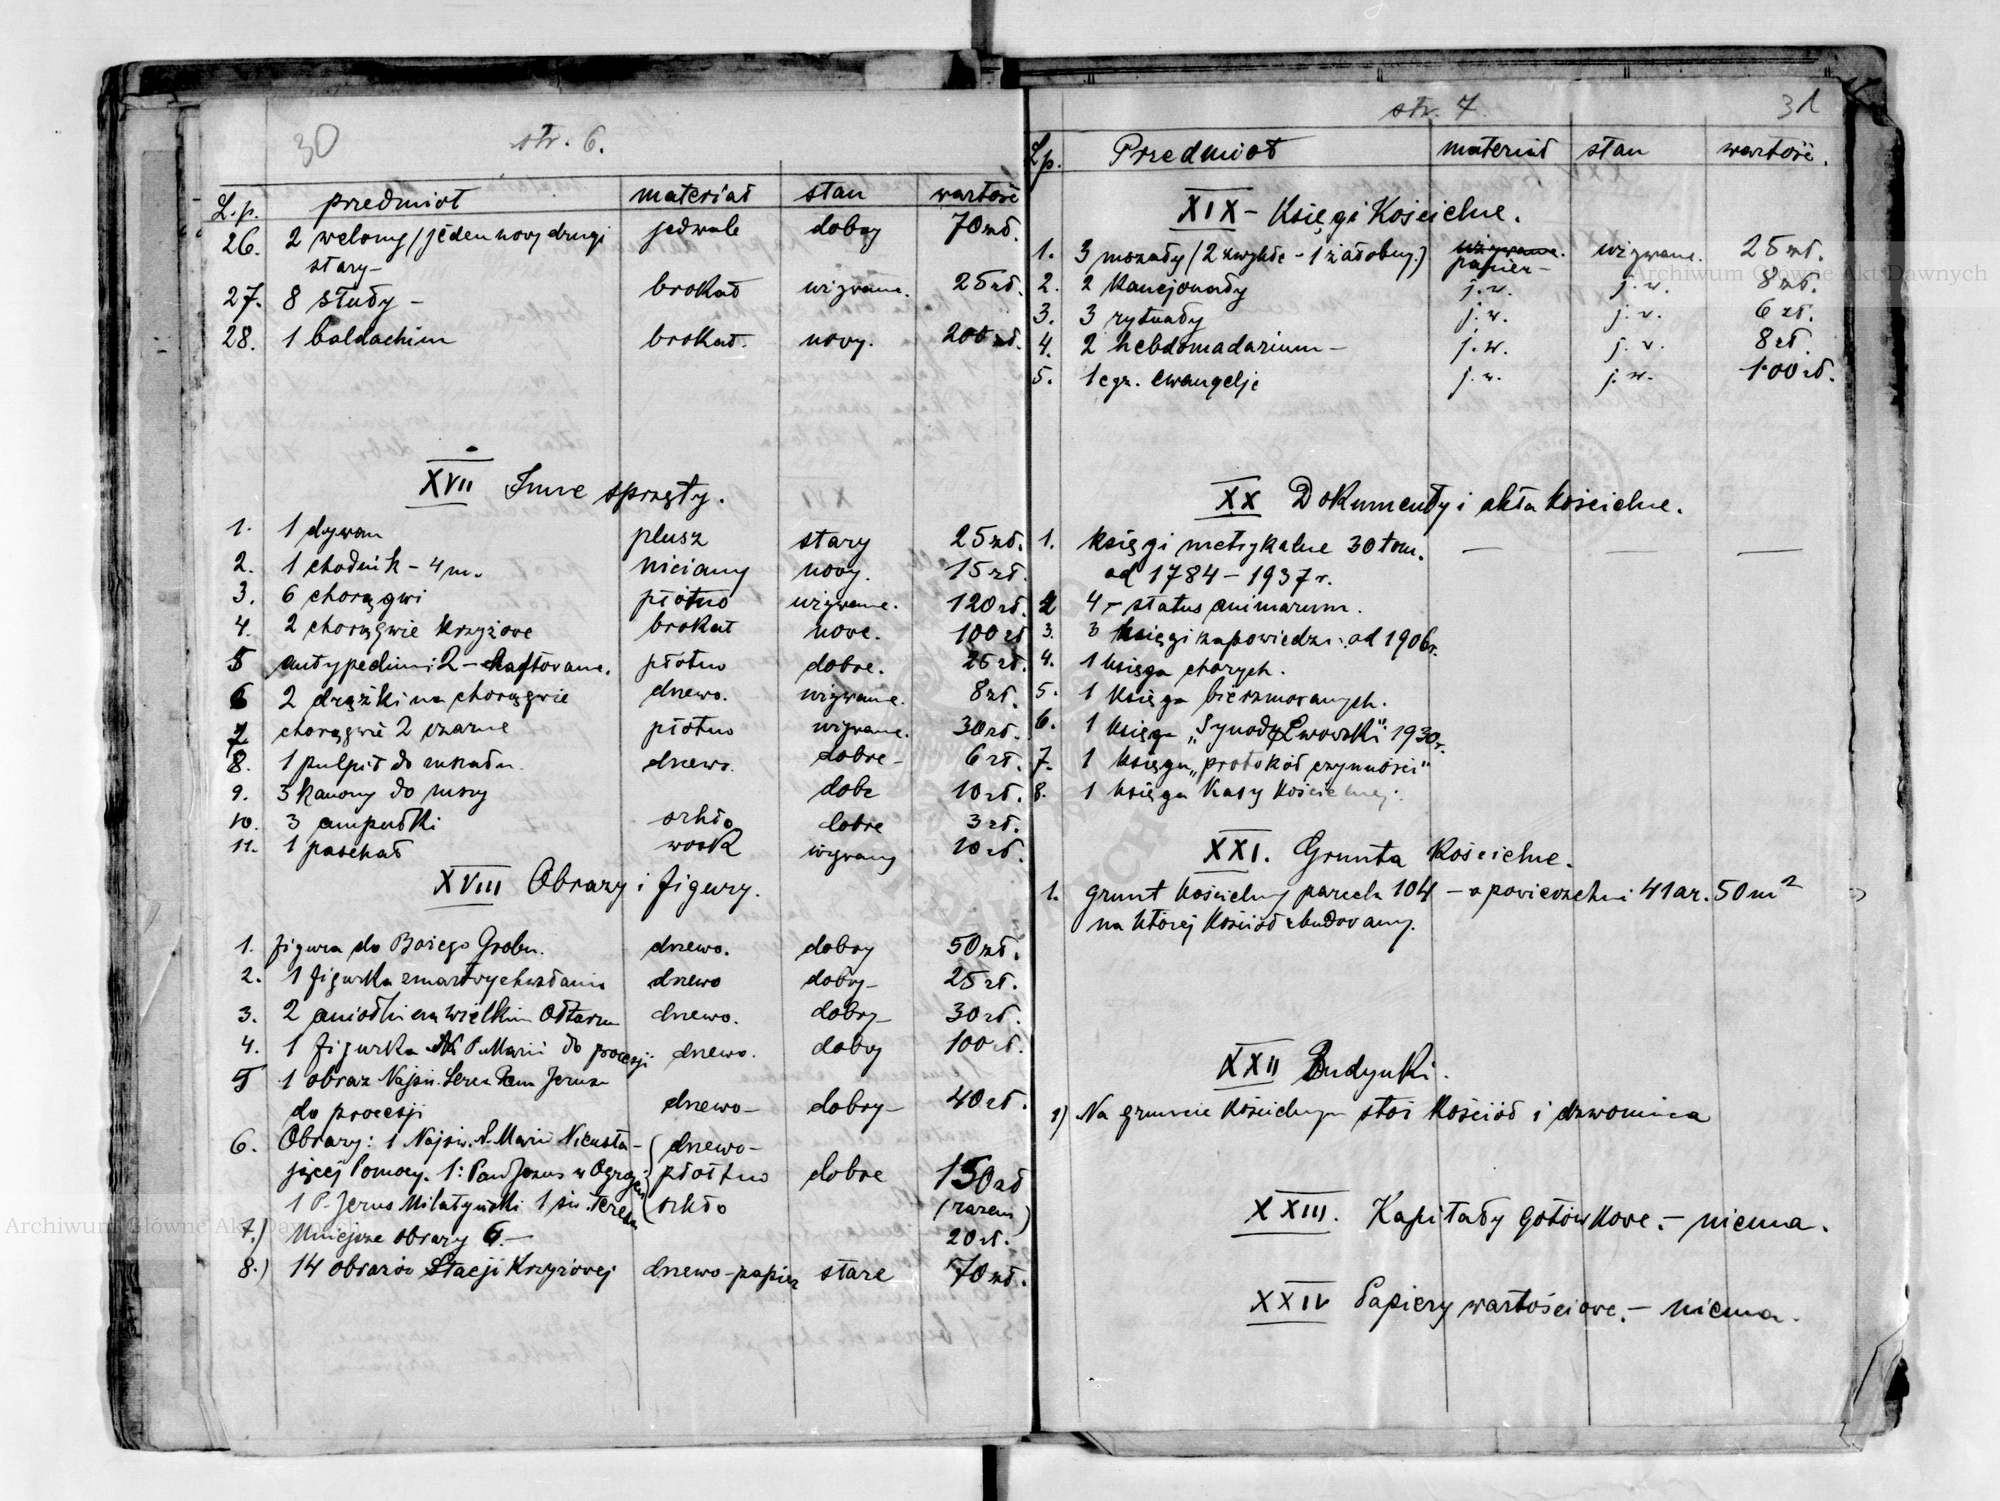 30
str. 6.
L.p. przedmiot materiał stan wartość
26. 2 welony / jeden nowy drugi jedwab dobry 70 zł.
stary –
27. 8 stuły – brokat używane. 25 zł.
28. 1 baldachim brokat. nowy. 200 zł.
XVII Inne sprzęty.
1. 1 dywan plusz stary 25 zł.
2. 1 chodnik – 4 m. niciany nowy. 15 zł.
3. 6 chorągwi płótno używane. 120 zł.
4. 2 chorągwie krzyżowe brokat nowe. 100 zł
5 antypedima 2 – haftowane. płótno dobre. 25 zł.
6 2 drążki na chorągwie drzewo. używane. 8 zł.
7 chorągwie 2 czarne płótno używane. 30 zł.
8. 1 pulpit do mszału drzewo. dobre – 6 zł.
9. 3 kanony do mszy dobre 10 zł.
10. 3 ampułki szkło dobre 3 zł.
11. 1 paschał wosk używany 10 zł.
XVIII Obrazy i figury.
1. figura do Bożego Grobu. drzewo. dobry 50 zł.
2. 1 figurka zmartwychwstania drzewo dobry – 25 zł.
3. 2 aniołki na wielkim Ołtarzu drzewo. dobry – 30 zł.
4. 1 figurka P. Marii do procesji drzewo. dobry 100 zł.
5 1 obraz Najśw. Serca Pana Jezusa
do procesji drzewo – dobry – 40 zł.
6. Obrazy: 1 Najśw. P. Marii Nieusta- drzewo –
jącej Pomocy. 1: Pan Jezus w Ogrojcu płótno dobre 150 zł
1 P. Jezus Milatyński 1 św. Teresa szkło (razem)
7.) Mniejsze obrazy 6. – 20 zł.
8.) 14 obrazów Stacji Krzyżowej drzewo – papier stare 70 zł.
str. 7.
31
Lp. Przedmiot materiał stan wartość.
XIX – Księgi Kościelne.
1. 3 mszały (2 zwykłe – 1 żałobny.) używane. papier – używane. 25 zł.
2. 2 kancjonały j. w. j. w. 8 zł.
3. 3 rytuały j. w. j. w. 6 zł.
4. 2 hebdomadarium – j. w. j. w. 8 zł.
5. 1 egz. ewangelje j. w. j. w. 1.00 zł.
XX Dokumenty i akta kościelne.
1. księgi metrykalne 30 tom. — — —
od 1784 – 1937 r.
2 4 – status animarum.
3. 3 księgi zapowiedzi. od 1906 r.
4. 1 księga chorych.
5. 1 księga bierzmowanych.
6. 1 księga „Synody Lwowski” 1930 r.
7. 1 księga „protokół czynności”
8. 1 księga Kasy Kościelnej.
XXI. Grunta Kościelne.
1. grunt kościelny parcela 104 – o powierzchni 41 ar. 50 m²
na której Kościół zbudowany.
XXII Budynki.
1) Na gruncie Kościelnym stoi Kościół i dzwonnica
XXIII. Kapitały gotówkowe. – niema.
XXIV Papiery wartościowe. – niema.
Archiwum Główne Akt Dawnych
Archiwum Główne Akt Dawnych